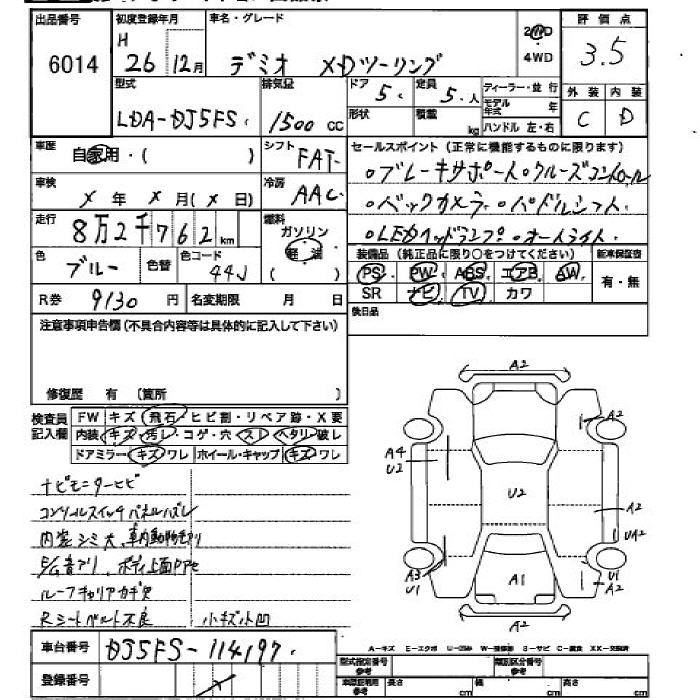 出品番号 初度登録年月 車名・グレード 評価点
6014 H 26 年 12月 デミオ XDツーリング 2WD 4WD 3.5
型式 排気量 ドア 5 定員 5人 ディーラー・並行 外装 内装
LDA-DJ5FS 1500 cc 形状 積載 kg モデル年式 年 ハンドル 左・右 C D
車歴 自家用・( ) シフト FAT セールスポイント (正常に機能するものに限ります)
車検 X 年 X 月 (X 日) 冷房 AAC ・ブレーキサポート・クルーズコントロール
走行 8万2千762km 燃料 ガソリン 軽油 ( ) ・バックカメラ・パドルシフト
・LEDヘッドランプ・オートライト
色 ブルー 色替 色コード 44J 装備品 (純正品に限り○をつけてください) 新車保証書
PS PW ABS エアB AW 有・無
R券 9130 円 名変期限 月 日 SR ナビ TV カワ
注意事項申告欄 (不具合内容等は具体的に記入して下さい) 後日品
修復歴 有 (箇所 )
検査員記入欄 FW キズ・飛石・ヒビ割・リペア跡・X要
内装 キズ・汚レ・コゲ・穴・スレ・ヘタリ・破レ
ドアミラー キズ・ワレ ホイール・キャップ キズ・ワレ
ナビモニターヒビ
コンソールスイッチパネルハズレ
内装シミ大、車内動物毛アリ
ルーフキャリアカギ欠
Rシートベルト不良 小キズ小凹
A2
A2
A2
A4 U2
U2
A2
UA2
A3 U1
A1
U1 A2
A2
A-キズ E-エクボ U-凹み W-補修跡 S-サビ C-腐食 XX-交換済
車台番号 DJ5FS-114197
型式指定番号 参考 類別区分番号 参考
登録番号 X 車庫証明用 参考 長さ cm 幅 cm 高さ cm